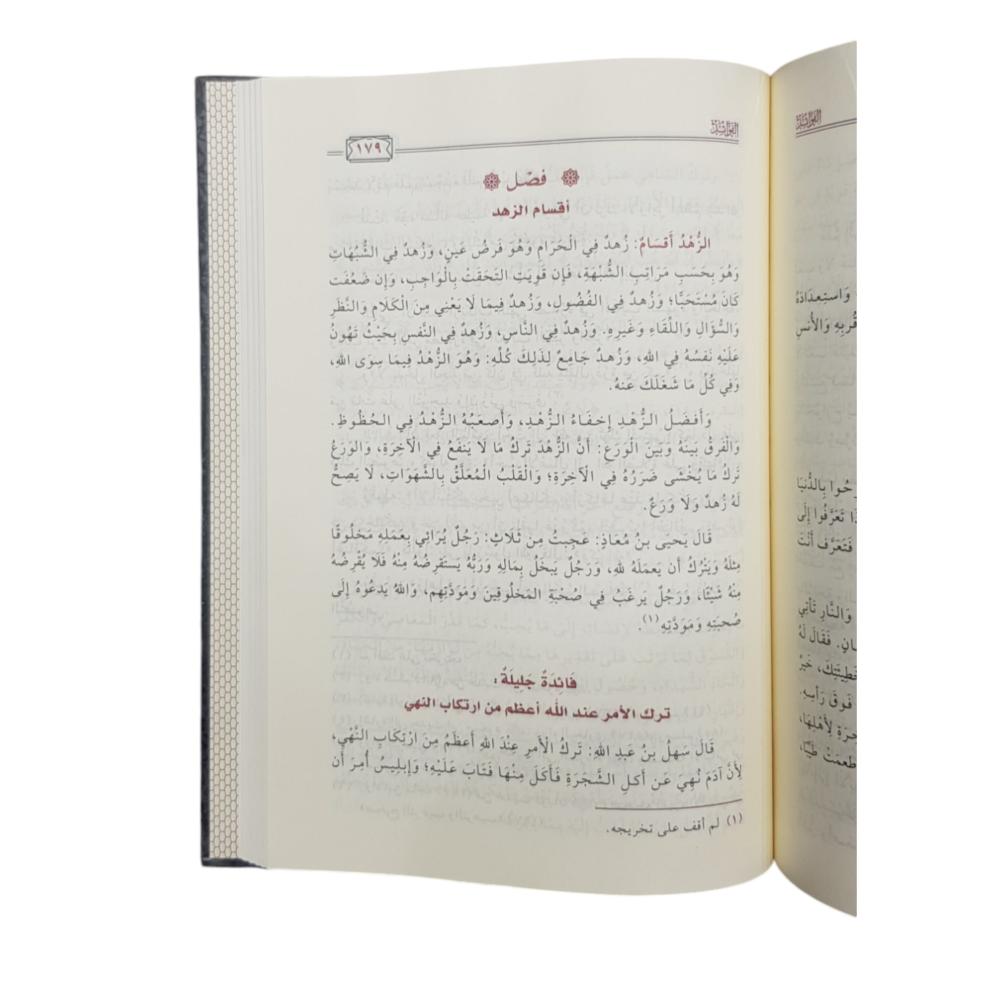 الفوائد
١٧٩
فصل
أقسام الزهد
الزُّهْدُ أَقسَامٌ: زُهدٌ فِي الْحَرَامِ وَهُوَ فَرضُ عَينٍ، وَزُهدٌ فِي الشُّبُهَاتِ
وَهُوَ بِحَسَبِ مَرَاتِبِ الشُّبْهَةِ، فَإِن قَوِيَتِ التَحَقَتْ بِالْوَاجِبِ، وَإِن ضَعُفَت
كَانَ مُسْتَحَبًّا؛ وَزُهدٌ فِي الفُضُولِ، وَزُهدٌ فِيمَا لَا يَعْنِي مِنَ الْكَلَامِ وَالنَّظَرِ
وَالسُّؤَالِ وَاللِّقَاءِ وَغَيرِهِ. وَزُهدٌ فِي النَّاسِ، وَزُهدٌ فِي النَّفسِ بِحَيثُ تَهُونُ
عَلَيْهِ نَفسُهُ فِي اللهِ، وَزُهدٌ جَامِعٌ لِذَلِكَ كُلِّهِ: وَهُوَ الزُّهْدُ فِيمَا سِوَى اللهِ،
وَفِي كُلِّ مَا شَغَلَكَ عَنهُ.
وَأَفضَلُ الزُّهْدِ إِخفَاءُ الزُّهْدِ، وَأَصعَبُهُ الزُّهْدُ فِي الحُظُوظِ.
وَالفَرقُ بَينَهُ وَبَينَ الْوَرَعِ: أَنَّ الزُّهْدَ تَركُ مَا لَا يَنفَعُ فِي الْآخِرَةِ، وَالوَرَعُ
تَركُ مَا يُخْشَى ضَرَرُهُ فِي الْآخِرَةِ؛ وَالْقَلْبُ الْمُعَلَّقُ بِالشَّهَوَاتِ، لَا يَصِحُّ
لَهُ زُهدٌ وَلَا وَرَعٌ.
قَالَ يَحيَى بنُ مُعَاذٍ: عَجِبتُ مِن ثَلَاثٍ: رَجُلٌ يُرَائِي بِعَمَلِهِ مَخلُوقًا
مِثلَهُ وَيَترُكُ أَن يَعمَلَهُ لِلهِ، وَرَجُلٌ يَبخَلُ بِمَالِهِ وَرَبُّهُ يَستَقرِضُهُ مِنْهُ فَلَا يُقْرِضُهُ
مِنْهُ شَيْئًا، وَرَجُلٌ يَرغَبُ فِي صُحْبَةِ المَخلُوقِينَ وَمَوَدَّتِهِم، وَاللهُ يَدعُوهُ إِلَى
صُحبَتِهِ وَمَوَدَّتِهِ(١).
فَائِدَةٌ جَلِيلَةٌ:
ترك الأمر عند الله أعظم من ارتكاب النهي
قَالَ سَهلُ بنُ عَبدِ اللهِ: تَركُ الْأَمرِ عِنْدَ اللهِ أَعظَمُ مِنَ ارْتِكَابِ النَّهْيِ،
لِأَنَّ آدَمَ نُهِيَ عَن أَكلِ الشَّجَرَةِ فَأَكَلَ مِنْهَا فَتَابَ عَلَيْهِ؛ وَإِبلِيسُ أُمِرَ أَن
(١) لم أقف على تخريجه.
الفوائد
وَاستِعدَادَهُ
قُربِهِ وَالأُنسِ
بِالدُّنيَا
تَعَرَّفُوا إِلَى
فَتَعَرَّف أَنتَ
وَالنَّارِ تَأتِي
فَقَالَ لَهُ
خَيرٌ
فَوقَ رَأسِهِ.
لِأَهلِهَا،
طَيِّبًا،